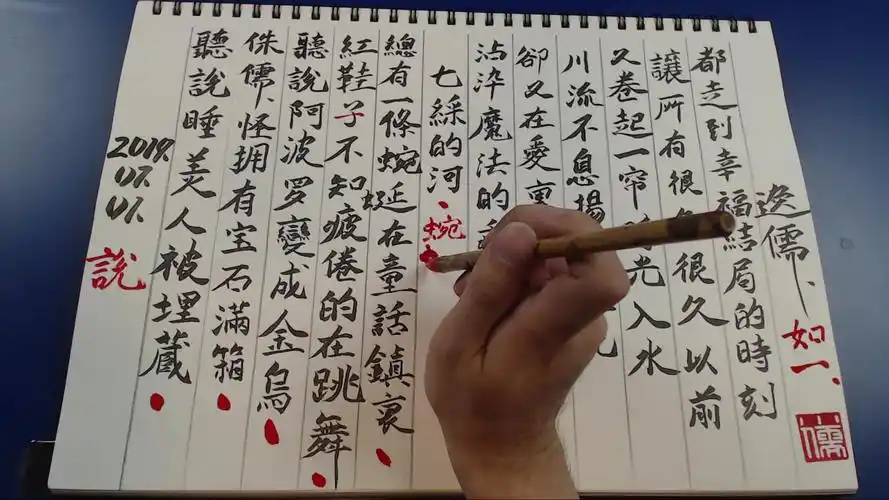 2019. 07. 01. 說
聽說睡美人被埋藏
侏儒、怪拥有宝石滿箱
聽說阿波罗變成金烏
紅鞋子不知疲倦的在跳舞
總有一條蜿蜒在童話鎮裏
七綵的河、蜿
沾泮魔法的
卻又在愛裏
川流不息揚
又卷起一帘光入水
讓所有很很久以前
都走到幸福結局的時刻
逸儒、如一、
儒